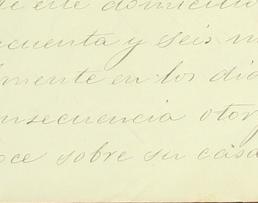 de este domicilio
cuenta y seis m
lmente en los dia
onsecuencia otor
oce sobre su casa